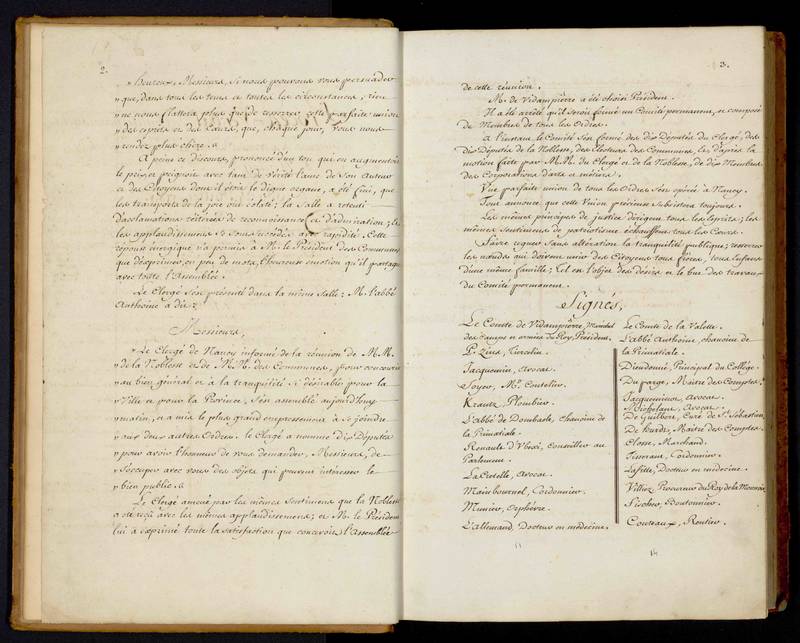 2.
» heureux, Messieurs, si nous pouvons vous persuader
» que, dans tous les tems et toutes les circonstances, rien
» ne nous flattera plus que de resserrer cette parfaite union
» des esprits et des cœurs, que, chaque jour, vous nous
» rendez plus chère. »
A peine ce discours, prononcé d'un ton qui en augmentoit
le prix, et peignoit avec tant de vérité l'ame de son Auteur
et des Citoyens dont il étoit le digne organe, a été fini, que
les transports de la joie ont éclaté; la Salle a retenti
d'acclamations réitérées de reconnoissance et d'admiration; et
les applaudissemens se sont succédés avec rapidité. Cette
réponse énergique n'a permis à M. le Président des Communes
que d'exprimer, en peu de mots, l'heureuse émotion qu'il partageoit
avec toute l'Assemblée.
Le Clergé s'est présenté dans la même Salle: M. l'abbé
Anthoine a dit:
Messieurs,
» Le Clergé de Nancy informé de la réunion de M.M.
» de la Noblesse et de M.M. des Communes, pour concourir
» au bien général et à la tranquilité si désirable pour la
» Ville et pour la Province, s'est assemblé aujourd'huy
» matin, et a mis le plus grand empressement à se joindre
» aux deux autres Ordres. le Clergé a nommé dix Députés
» pour avoir l'honneur de vous demander, Messieurs, de
» s'occuper avec vous des objets qui peuvent intéresser le
» bien public. »
Le Clergé animé par les mêmes Sentimens que la Noblesse
a été reçu avec les mêmes applaudissemens; et M. le Président
lui a exprimé toute la satisfaction que concevoit l'Assemblée
3.
de cette réunion.
M. de Vidampierre a été choisi Président.
Il a été arrêté qu'il seroit formé un Comité permanent, et composé
de Membres de tous les Ordres.
A l'instant, le Comité s'est formé des dix Députés du Clergé, des
dix Députés de la Noblesse, des Electeurs des Communes, et d'après la
motion faite par M.M. du Clergé et de la Noblesse, de dix Membres
des Corporations d'arts et métiers.
Une parfaite union de tous les Ordres s'est opérée à Nancy.
Tout annonce que cette Union précieuse subsistera toujours.
Les mêmes principes de justice dirigent tous les esprits; les
mêmes Sentimens de patriotisme échauffent tous les Cœurs.
Faire regner sans altération la tranquilité publique; resserrer
les nœuds qui doivent unir des Citoyens tous frères, tous enfans
d'une même famille; tel est l'objet des désirs et le but des travaux
du Comité permanent.
Signés,
Le Comte de Vidampierre, Maréchal
des Camps et armées du Roy, Président.
P. Zins, Curcelier.
Jacquemin, avocat.
Soyer, Mr. Coutelier.
Krantz, Plombier.
L'Abbé de Dombasle, chanoine de
la Primatiale.
Renault d'Ubexi, Conseiller au
Parlement.
La Cretelle, Avocat.
Mainbournel, Cordonnier.
Munier, Orphèvre.
L'allemand, Docteur en médecine.
Le Comte de la Valette.
L'abbé Anthoine, chanoine de
la Primatiale.
Dieudonné, Principal du Collège.
Du parge, Maitre des Comptes.
Jacqueminot, Avocat.
Michelant, Avocat.
De Guilbert, Curé de St. Sébastien
De Bourdt, Maitre des Comptes.
Closse, Marchand.
Tisserant, Cordonnier.
Lafitte, Docteur en médecine.
Villiez, Procureur du Roy de la Monnoie
Fischer, Boutonnier.
Couteaux, Rentier.